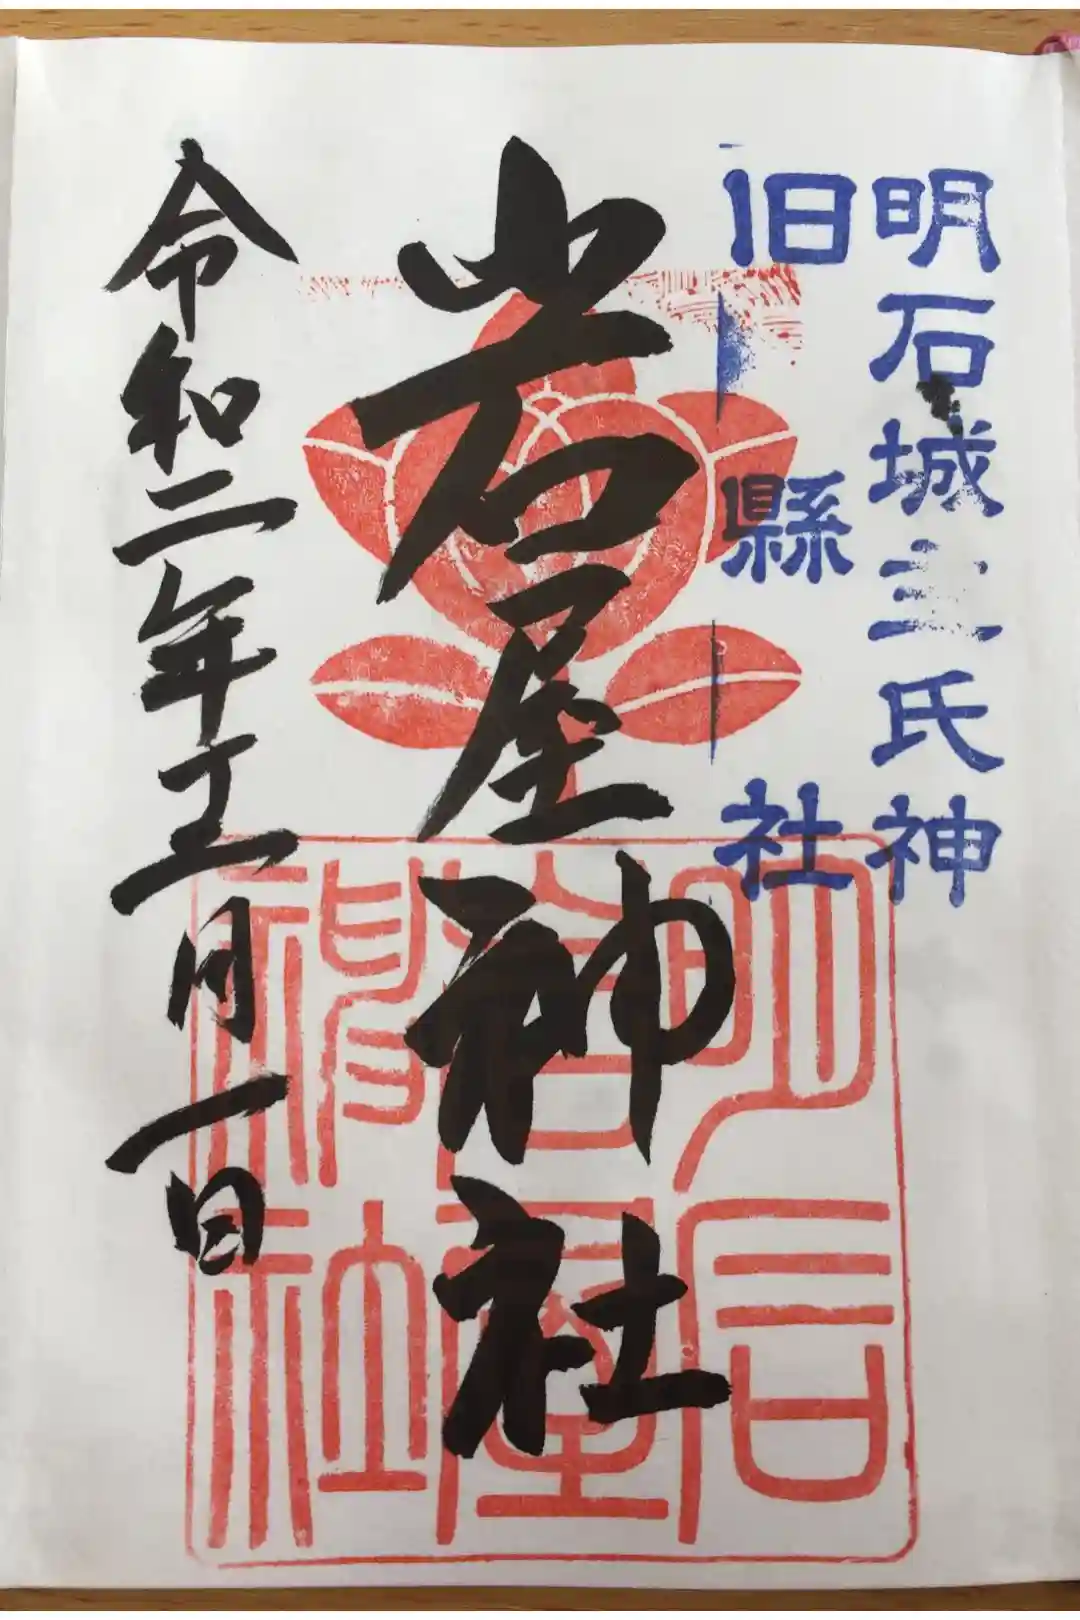 明石城主氏神
旧縣社
岩屋神社
令和二年月一日
明石
岩屋
神社